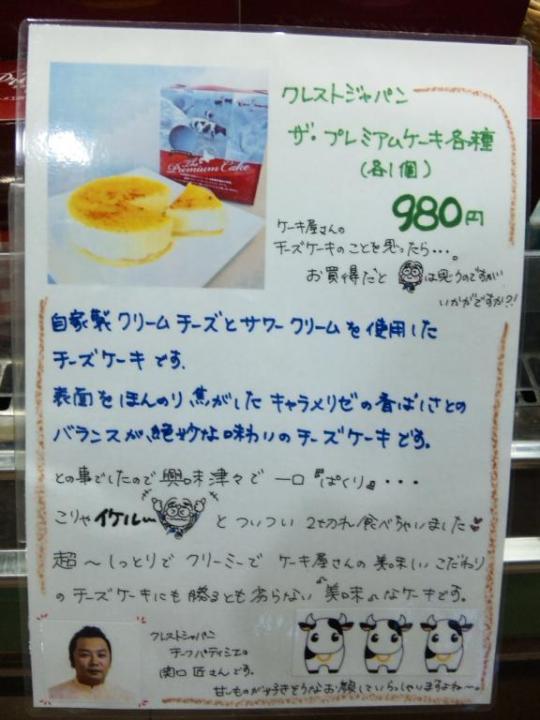 クレストジャパン
ザ・プレミアムケーキ各種
(各1個)
980円
The
Premium Cake
ケーキ屋さんの
チーズケーキのことを思ったら・・・。
お買得だと は思うのですが
いかがですか?!
自家製クリームチーズとサワークリームを使用した
チーズケーキです.
表面をほんのり焦がしたキャラメリゼの香ばしさとの
バランスが、絶妙な味わいのチーズケーキです.
との事でしたので興味津々で 一口『ぱくり』・・・
こりゃイケルー
とついつい 2切れ食べちゃいました
超〜しっとりでクリーミーで ケーキ屋さんの美味しいこだわり
のチーズケーキにも勝るとも劣らない“美味”なケーキです.
クレストジャパン
チーフパティシエの
関口 匠さんです.
甘いものが好きそうなお顔していらっしゃいますよね〜。